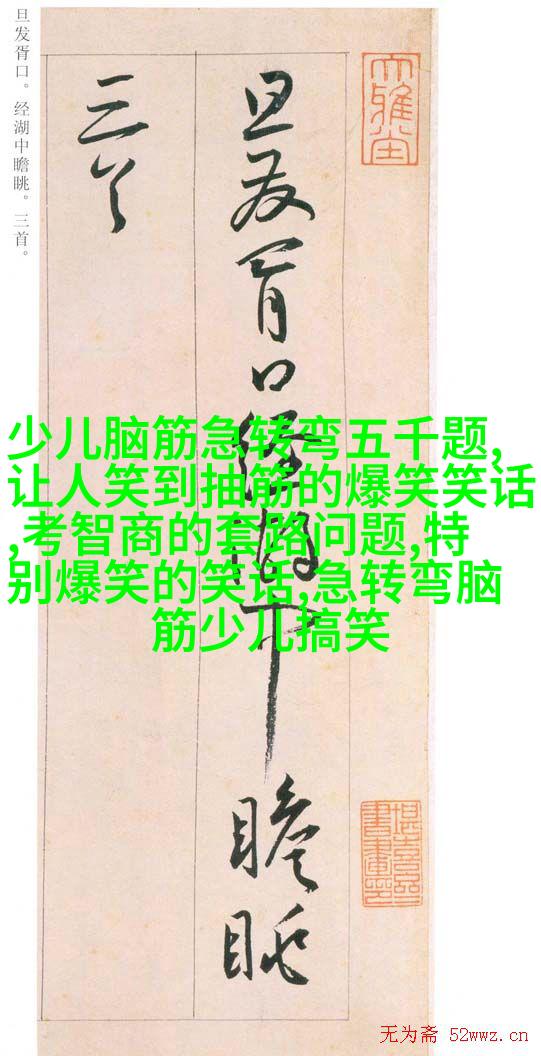 旦发胥口。经湖中瞻眺。三首。
旦发胥口经湖中瞻眺
三首
少儿脑筋急转弯五千题,
让人笑到抽筋的爆笑笑话
,考智商的套路问题,特
别爆笑的笑话,急转弯脑
筋少儿搞笑
无为斋 52wwz.cn